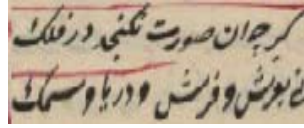 گرچه آن صورت نگنجد در فلک
نه بعرش و فرش و دریا و سمک